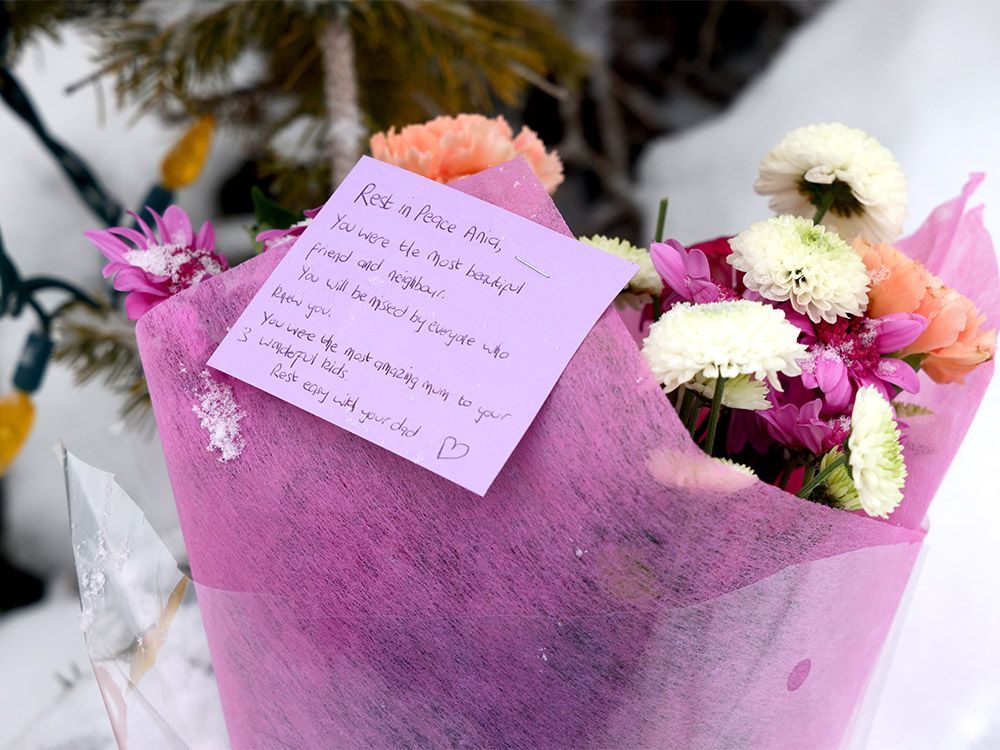 Rest in Peace Anici,
You were the most beautiful
friend and neighbour.
You will be missed by everyone who
knew you.
You were the most amazing mum to your
3 wonderful kids.
Rest easy with your dad ♡